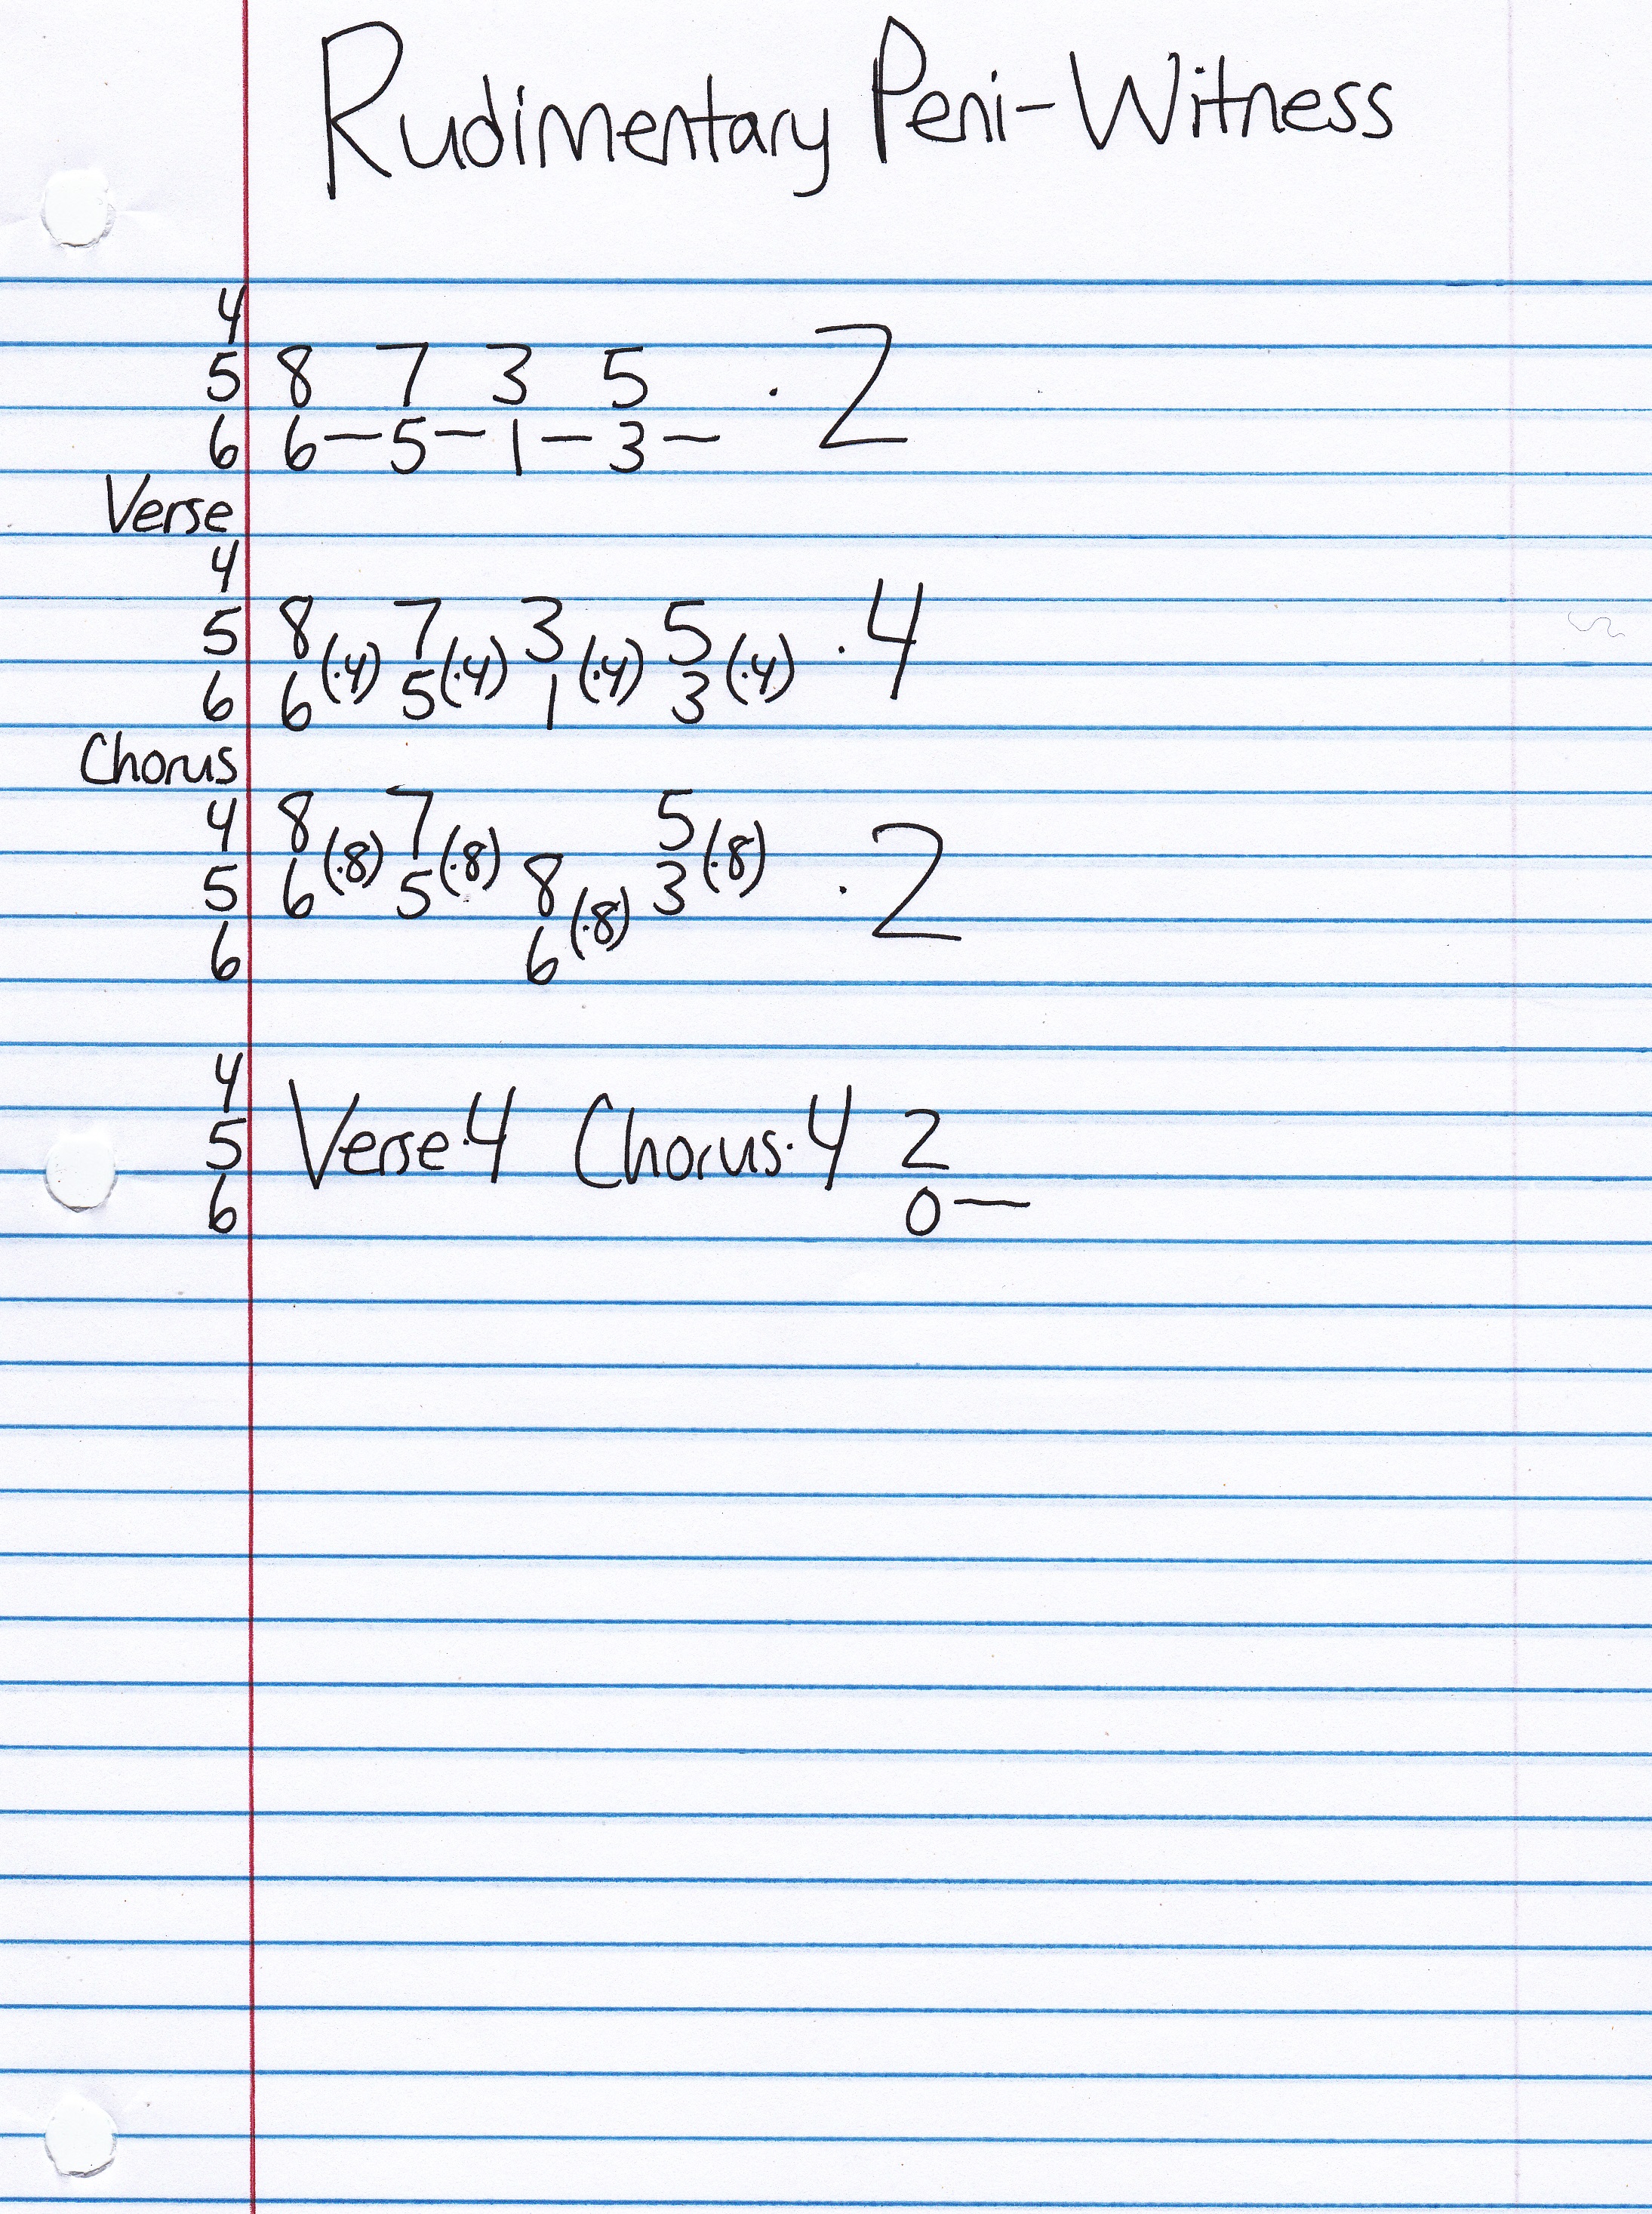 Rudimentary Peni-Witness
4
5 8 7 3 5 · 2
6 6— 5— 1— 3—
Verse
4
5 8 (·4) 7 (·4) 3 (·4) 5 (·4) · 4
6 6 5 1 3
Chorus
4 8 (·8) 7 (·8) 5 (·8)
5 6 5 8 (·8) 3 · 2
6 6
4
5 Verse·4 Chorus·4 2
6 0—